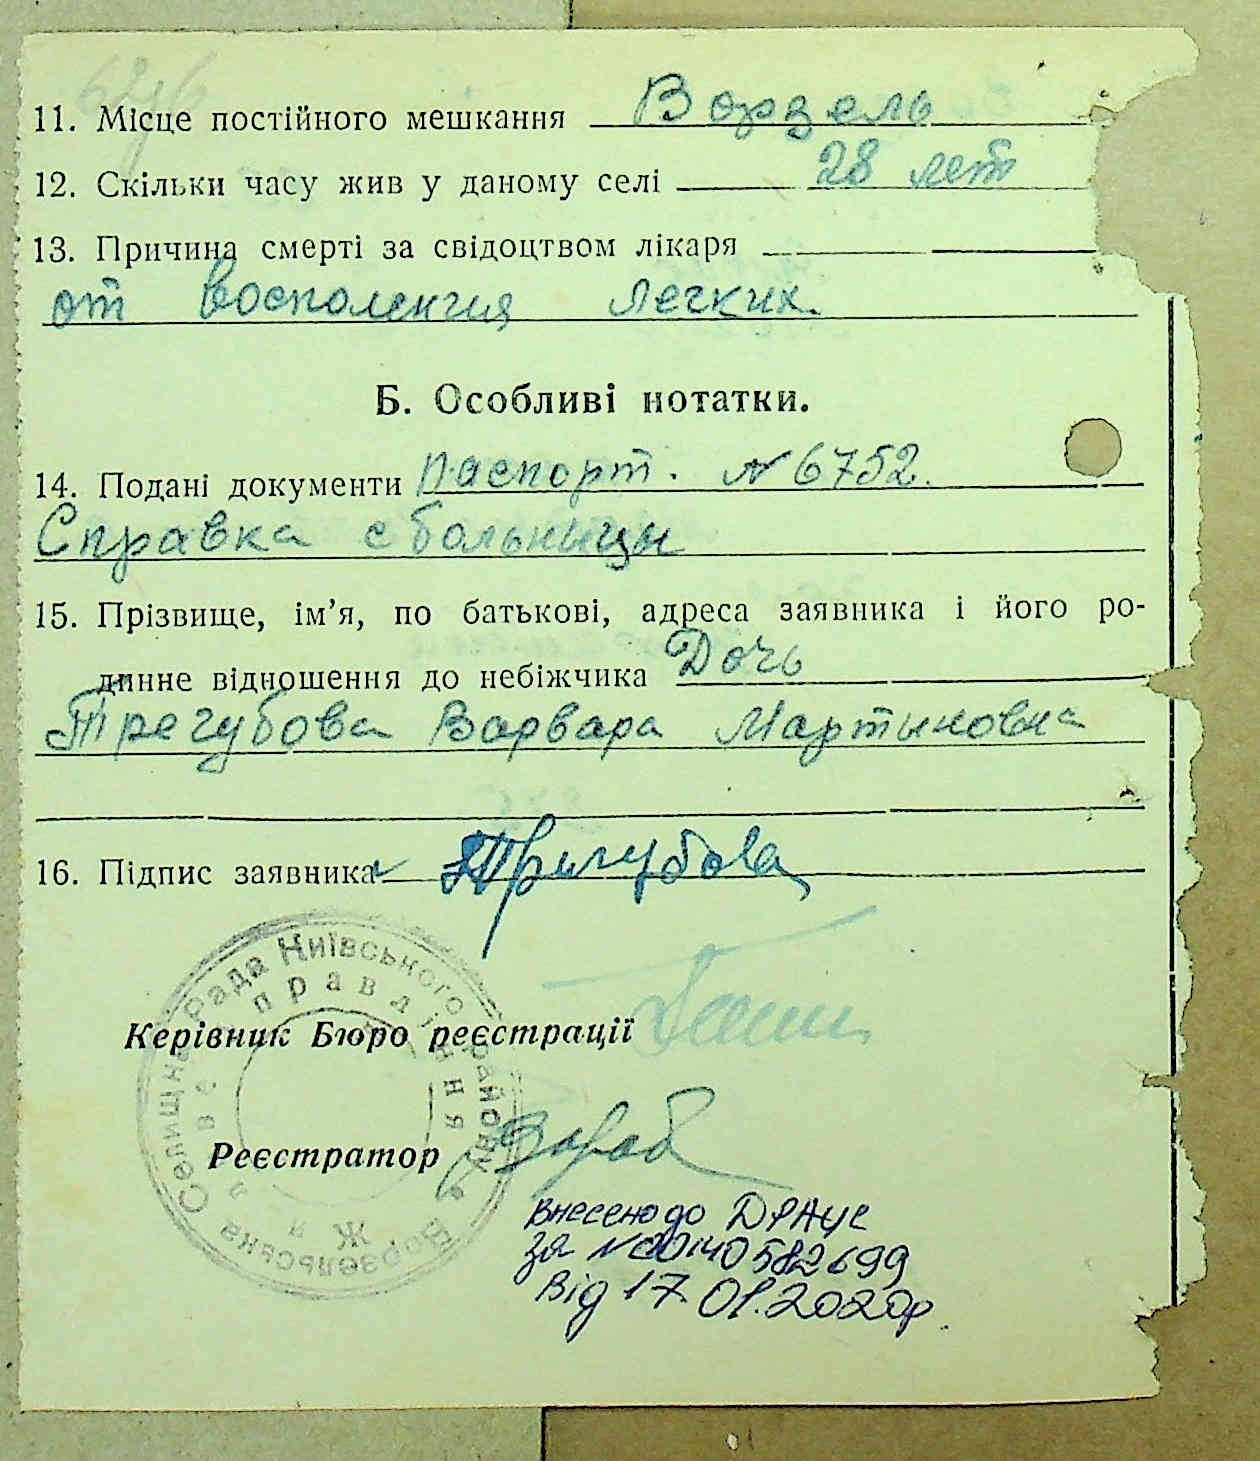 11. Місце постійного мешкання Ворзель
12. Скільки часу жив у даному селі 28 лет
13. Причина смерті за свідоцтвом лікаря
от восполения легких.
Б. Особливі нотатки.
14. Подані документи Паспорт. № 6752.
Справка с больницы
15. Прізвище, ім’я, по батькові, адреса заявника і його ро-
динне відношення до небіжчика Дочь
Трегубова Варвара Мартыновна
16. Підпис заявника Тригубова
Ворзельська Селищна рада Київського району
правління
Керівник Бюро реєстрації
Реєстратор
Внесено до ДРАЦС
за №00140582699
Від 17.01.2020р.